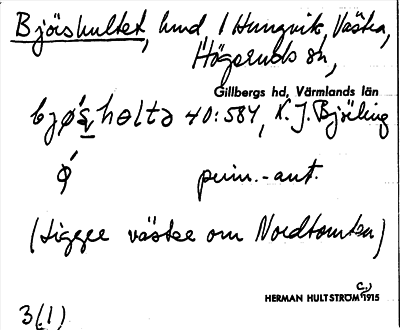 Björshultet, hmd, i Hungvik, Västra,
Högeruds sn,
Gillbergs hd, Värmlands län
40:584, K. J. Björling
prim.-ant.
(ligger väster om Nordtomten)
HERMAN HULTSTRÖM C:) 1915
3(1)